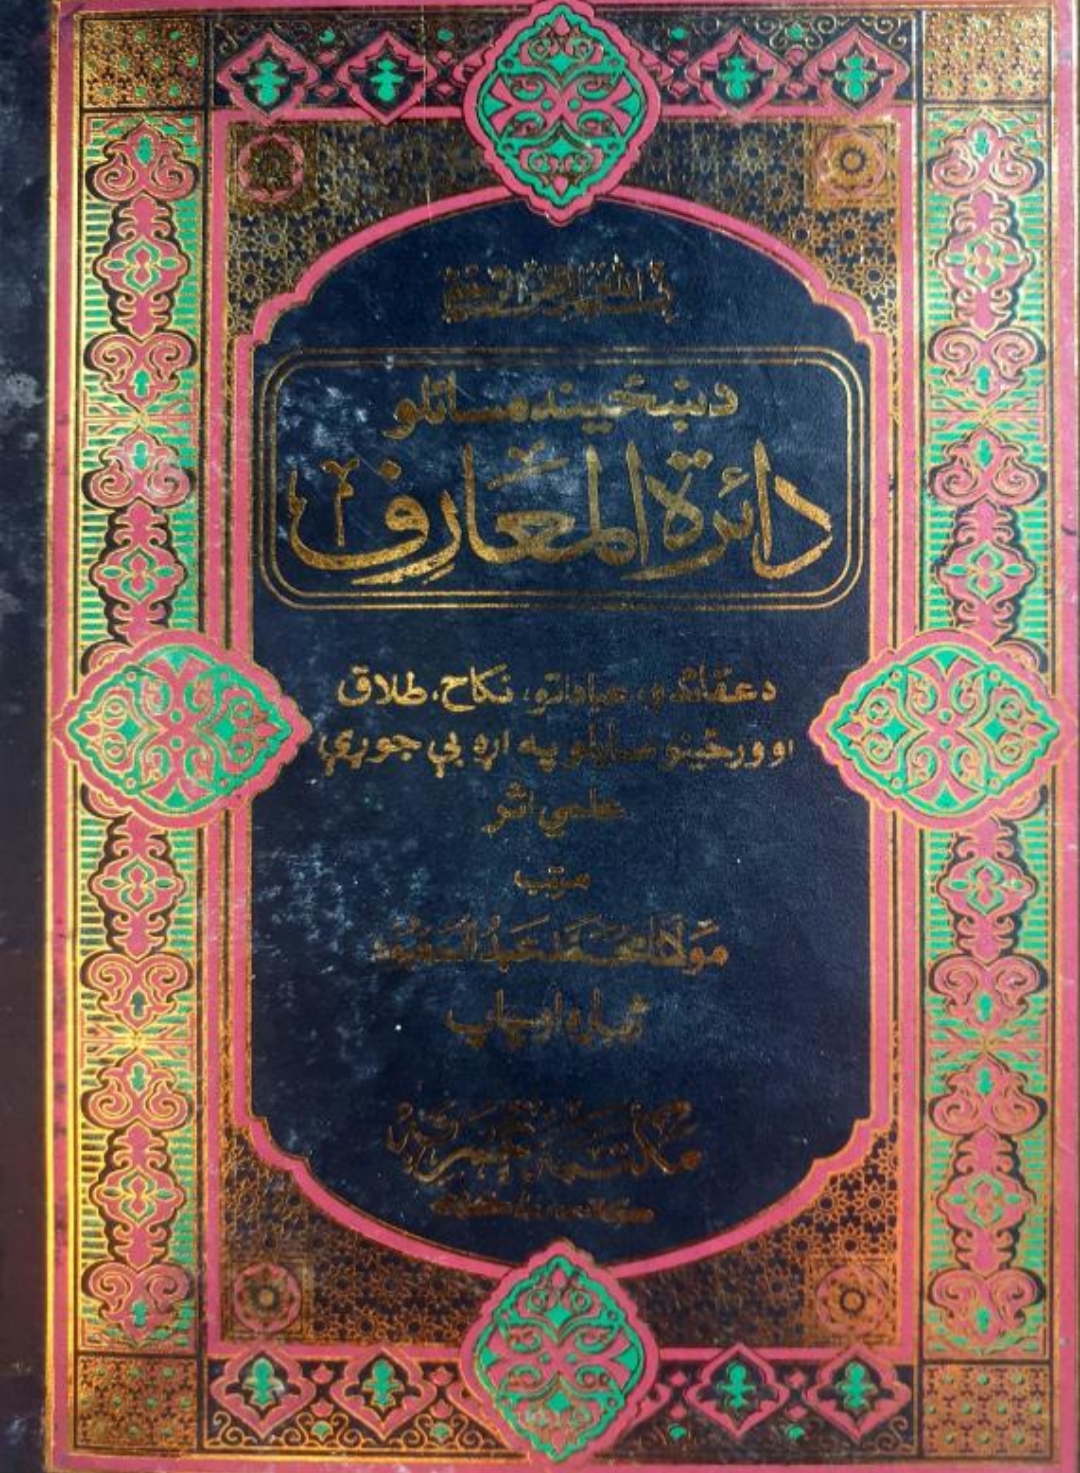 بسم الله الرحمن الرحيم
دښځينه مسائلو
دائرة المعارف
دعقائدو، عباداتو، نکاح، طلاق
او ورځينو مسايلو په اړه يې جوړې
علمي اثر
مرتب
مولانا محمد عبد المعبود
ژباړه او چاپ
مکتبة عمريه